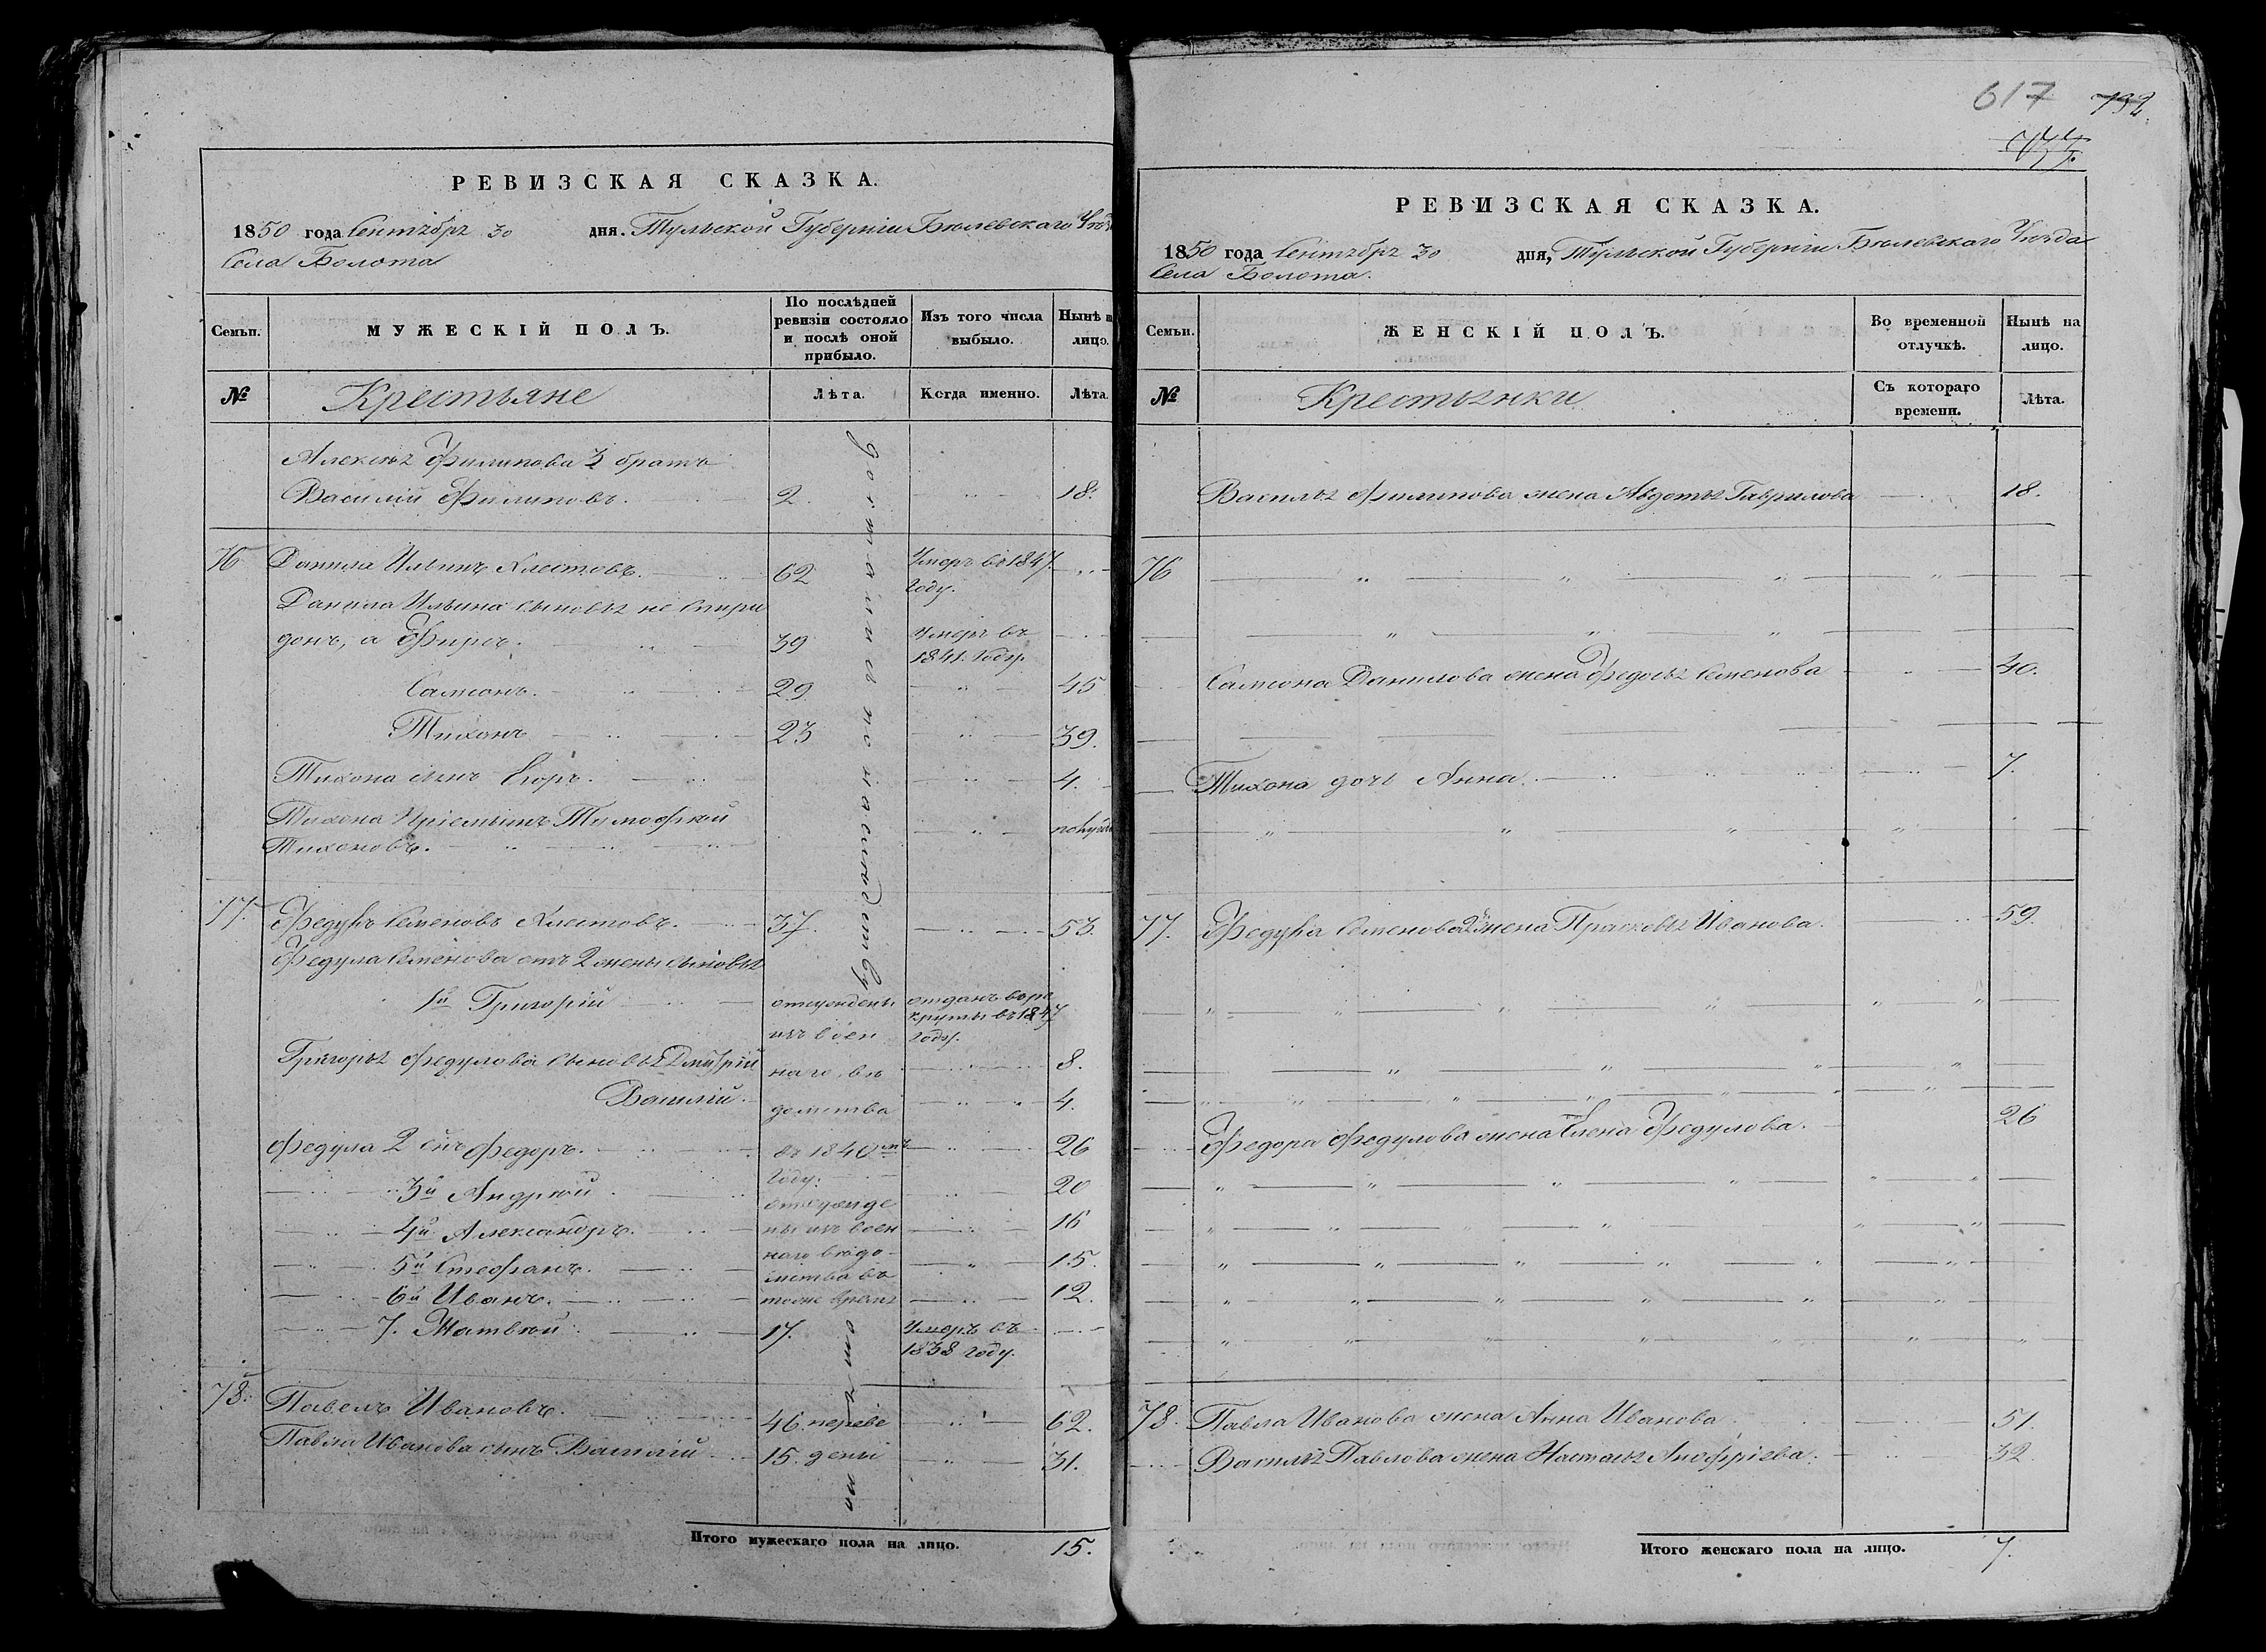 РЕВИЗСКАЯ СКАЗКА.
1850 года Сентября 30 дня. Тульской Губернiи Бѣлевскаго Уѣзда
Села Болота
Семьи. МУЖЕСКIЙ ПОЛЪ. По послѣдней ревизiи состояло и послѣ оной прибыло. Изъ того числа выбыло. Нынѣ на лицо.
№ Крестьяне Лѣта. Когда именно. Лѣта.
Алексѣя Филипова 3 братъ
Василiй Филиповъ. 2. 18.
76 Данила Ильинъ Хлестовъ. 62 Умеръ въ 1847. Году.
Данила Ильина сыновья не Спири
донъ, а Фирсъ. 39 Умеръ въ 1841. Году.
Самсонъ. 29. 45
Тихонъ 23 39.
Тихона сынъ Егоръ. 4.
Тихона Прiемышъ Тимофѣй
Тихоновъ. полугода
77. Федулъ Семеновъ Хлестовъ. 37. 53.
Федула Семенова отъ 2 жены сыновья
1й Григорiй отсуждены отданъ въ ре
круты въ 1847 году.
изъ воен
Григорья Федулова сыновья Дмитрiй 8.
наго вѣ
Василiй. 4.
домства
Федула 2 сынъ Федоръ. въ 1840мъ 26
Году.
3й Андрей. 20
отсужде
4й Александръ. ны изъ воен 16
наго вѣдо
5й Стефанъ. 15.
мства въ
6й Иванъ. тоже время 12.
7. Матвѣй. 17. Умеръ въ 1838 году.
78. Павелъ Ивановъ. 46. переве 62.
Павла Иванова сынъ Василiй 15. дены 31.
достались по наслѣдству
Итого мужескаго пола на лицо. 15.
617 792.
РЕВИЗСКАЯ СКАЗКА.
1850 года Сентября 30 дня, Тульской Губернiи Бѣлевскаго Уѣзда
Села Болота.
Семьи. ЖЕНСКIЙ ПОЛЪ. Во временной отлучкѣ. Нынѣ на лицо.
№ Крестьянки Съ котораго времени. Лѣта.
Василья Филипова жена Авдотья Гаврилова 18.
76
Самсона Данилова жена Федосья Семенова 40.
Тихона дочь Анна. 7.
77. Федула Семенова 2 жена Прасковья Иванова. 59.
Федора Федулова жена Елена Федулова. 26
78. Павла Иванова жена Анна Иванова 51.
Василья Павлова жена Настасья Анофрiева. 32.
Итого женскаго пола на лицо. 7.